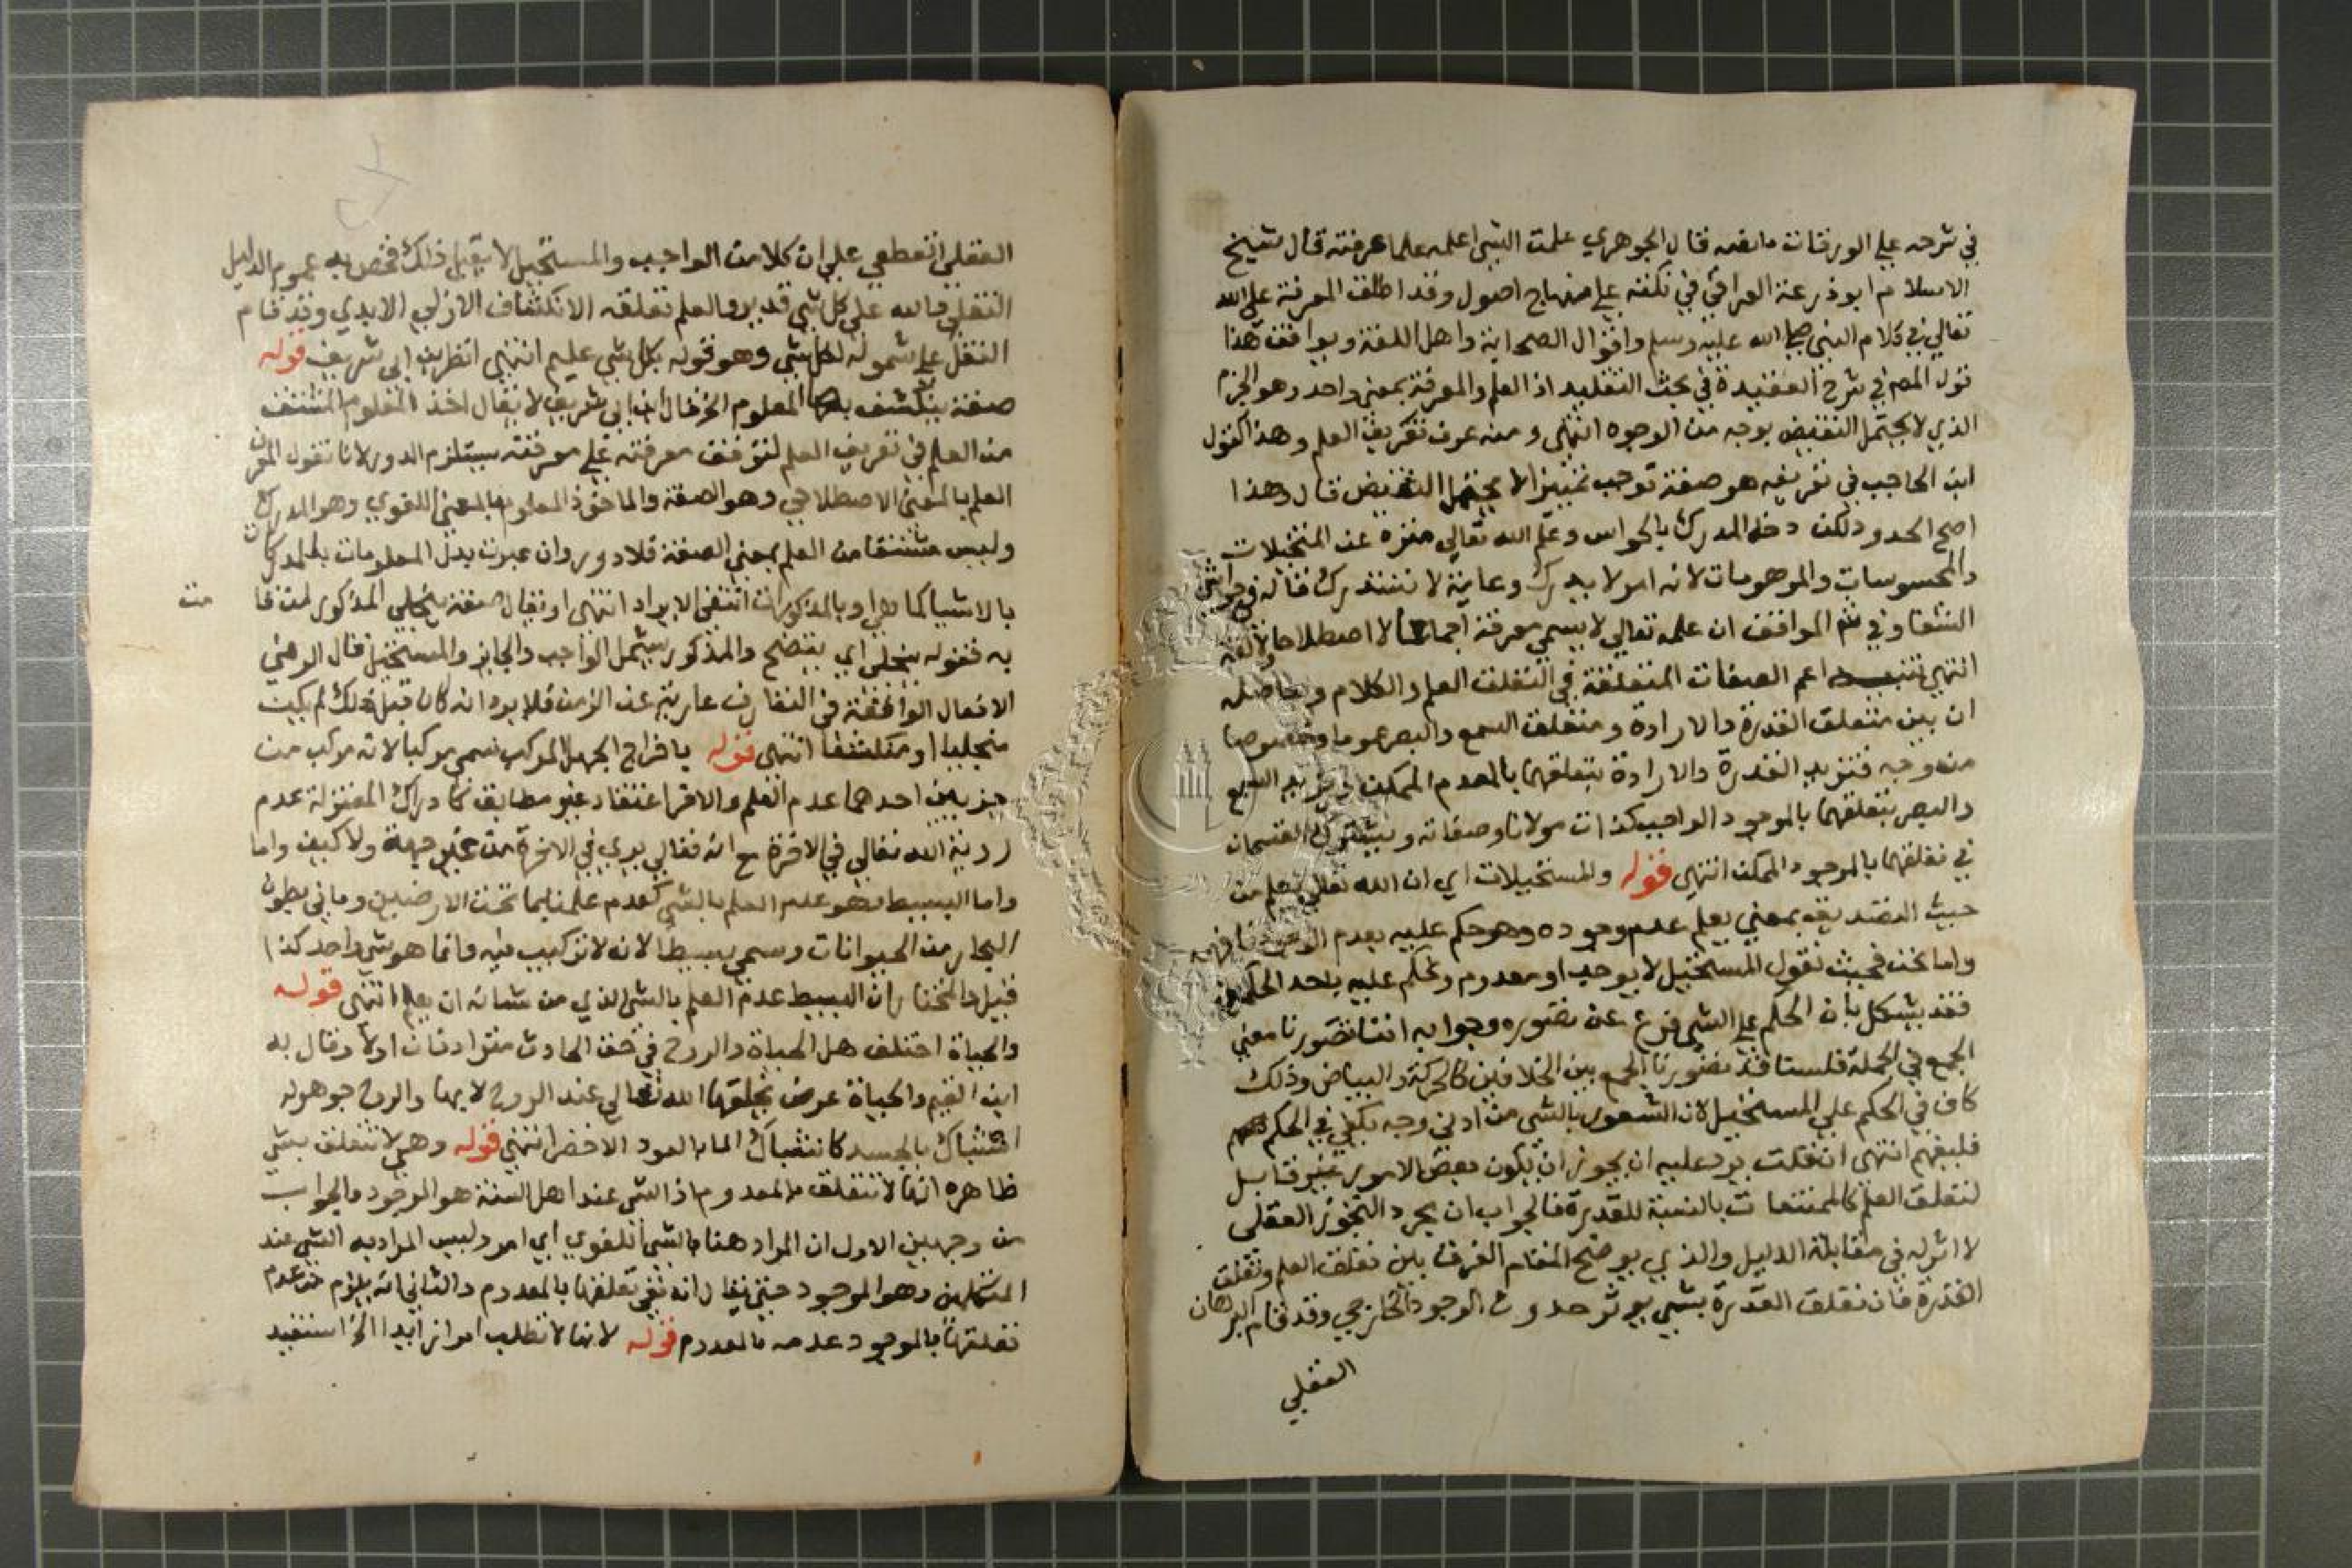 في شرحه علي الورقات ما نصه قال الجوهري علمت الشي اعلمه علما عرفته قال شيخ
الاسلام ابو ذرعة العراقي في نكته علي منهاج اصول وقد اطلقت المعرفة علي الله
تعالي في كلام النبي صلي الله عليه وسلم واقوال الصحابة واهل اللغة ويوافق هذا
قول المص في شرح العقيدة في بحث التقليد اذ العلم والمعرفة بمعني واحد وهو الجزم
الذي لا يحتمل النقيض بوجه من الوجوه انتهي ومنه عرف تعريف العلم وهذا كقول
ابن الحاجب في تعريفه هو صفة توجب تمييزا لا يحتمل النقيض قال وهذا
اصح الحدود لكن دخل المدرك بالحواس وعلم الله تعالي منزه عن المتخيلات
والمحسوسات والموهومات لانه امر لا يدرك وعاينة لا تستدرك قاله في حواشي
الشفا وفي شم المواقف ان علمه تعالي لا يسمي معرفة اجماعا لا اصطلاحا ولا لغة
انتهي تنبيه اعم الصفات المتعلقة في التعلق العلم والكلام وحاصله
ان بين متعلق القدرة والارادة ومتعلق السمع والبصر عموما وخصوصا
من وجه فتزيد القدرة والارادة بتعلقهما بالمعدوم الممكن ويزيد السمع
والبصر بتعلقهما بالموجود الواجب كذات مولانا وصفاته ويشترك القسمان
في تعلقهما بالموجود الممكن انتهي قوله والمستحيلات اي ان الله تعالي يعلم من
حيث التصديقه بمعني يعلم عدم وجوده وهو حكم عليه بعدم الوجود فافهمه
واما نحن فحيث نقول المستحيل لا يوجد او معدوم ونحكم عليه باحد الحكمين
فقد يشكل بان الحكم علي الشي فرع عن تصوره وجوابه اننا تصورنا معني
الجمع في الجملة فلسنا قد تصورنا الجمع بين الخلافين كالحركة والبياض وذلك
كاف في الحكم علي المستحيل لان الشعور بالشي من ادني وجه يكفي في الحكم
فليفهم انتهي ان قلت يرد عليه ان يجوز ان يكون بعض الامور غير قابل
لتعلق العلم كالممتنعات بالنسبة للقدرة فالجواب ان مجرد التجوز العقلي
لا اثر له في مقابلة الدليل والذي يوضح المقام الفرق بين تعلق العلم وتعلق
القدرة فان تعلق القدرة بشي يوثر حدوث الوجود الخارجي وقد قام البرهان
العقلي
العقلي القطعي علي ان كلا من الواجب والمستحيل لا يقبل ذلك فخص به عموم الدليل
النقلي والله علي كل شي قدير والعلم تعلقه الانكشاف الازلي الابدي وقد قام
النقل علي شموله لكل شي وهو قوله بكل شي عليم انتهي انظر ابن ابي شريف قوله
صفة ينكشف بها المعلوم الخ قال ابن ابي شريف لا يقال اخذ المعلوم المشتق
من العلم في تعريف العلم لتوقف معرفته علي معرفته يستلزم الدور لانا نقول المعرف
العلم بالمعني الاصطلاحي وهو الصفة والماخوذ المعلوم بالمعني اللغوي وهو المدرك
وليس مشتقا من العلم بمعني الصفة فلا دور وان عبرت بدل المعلومات بالمدركات
بالاشيا كما هي او بالمذكورات انتفي الايراد انتهي او يقال صفة ينجلي المذكور لمن قا
مت
به فقوله ينجلي اي يتضح والمذكور يشمل الواجب والجايز والمستحيل قال الرهني
الافعال الواقعة في التعاريف عارية عن الزمن فلا يرد انه كان قبل ذلك لم يكن
منجليا او منكشفا انتهي قوله يا فراج الجهل المركب سمي مركبا لانه مركب من
جزيين احدهما عدم العلم والاخر اعتقاد غير مطابق كادراك المعتزلة عدم
روية الله تعالي في الاخرة مع انه تعالي يري في الاخرة من غير جهة ولا كيف واما
واما البسيط فهو عدم العلم بالشي كعدم علمنا بما تحت الارضين وما في بطون
البحار من الحيوانات وسمي بسيطا لانه لا تركيب فيه وانما هو شي واحد كذا
قيل والمختار ان البسيط عدم العلم بالشي الذي من شانه ان يعلم انتهي قوله
والحياة اختلف هل الحياة والروح في حق الحادث مترادفان اولا وقال به
ابن القيم والحياة عرض يخلقها الله تعالي عند الروح لا بها والروح جوهر له
اشتباك بالجسد كاشتباك الما بالعود الاخضر انتهي قوله وهي لا تتعلق بشي
ظاهره انها لا تتعلق بالمعدوم اذ الشي عند اهل السنة هو الموجود والجواب
من وجهين الاول ان المراد هنا بالشي اللغوي اي امر وليس المراد به الشي عند
المتكلمين وهو الموجود حتي يقال انه نفي تعلقها بالمعدوم والثاني انه يلزم من عدم
تعلقها بالموجود عدمه بالمعدوم قوله لانها لا تطلب امرا زايدا الخ استفيد